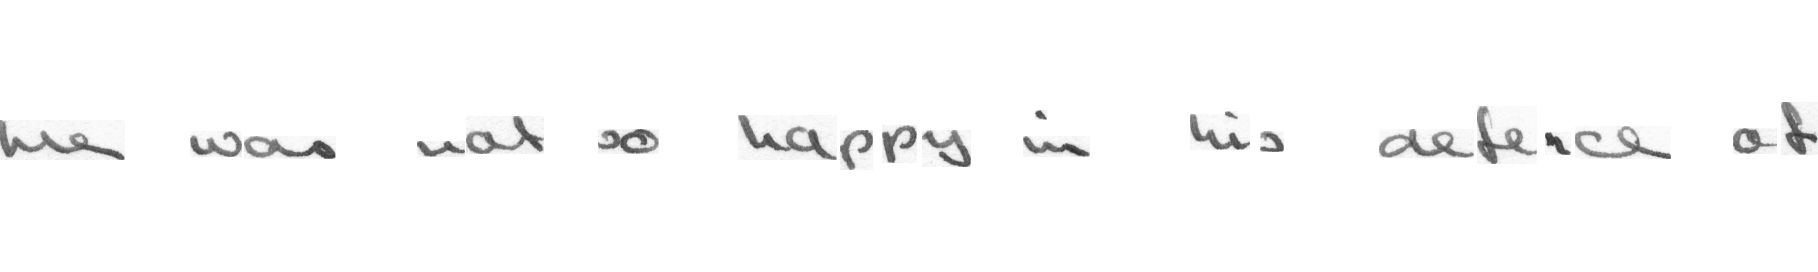 he was not so happy in his defence of